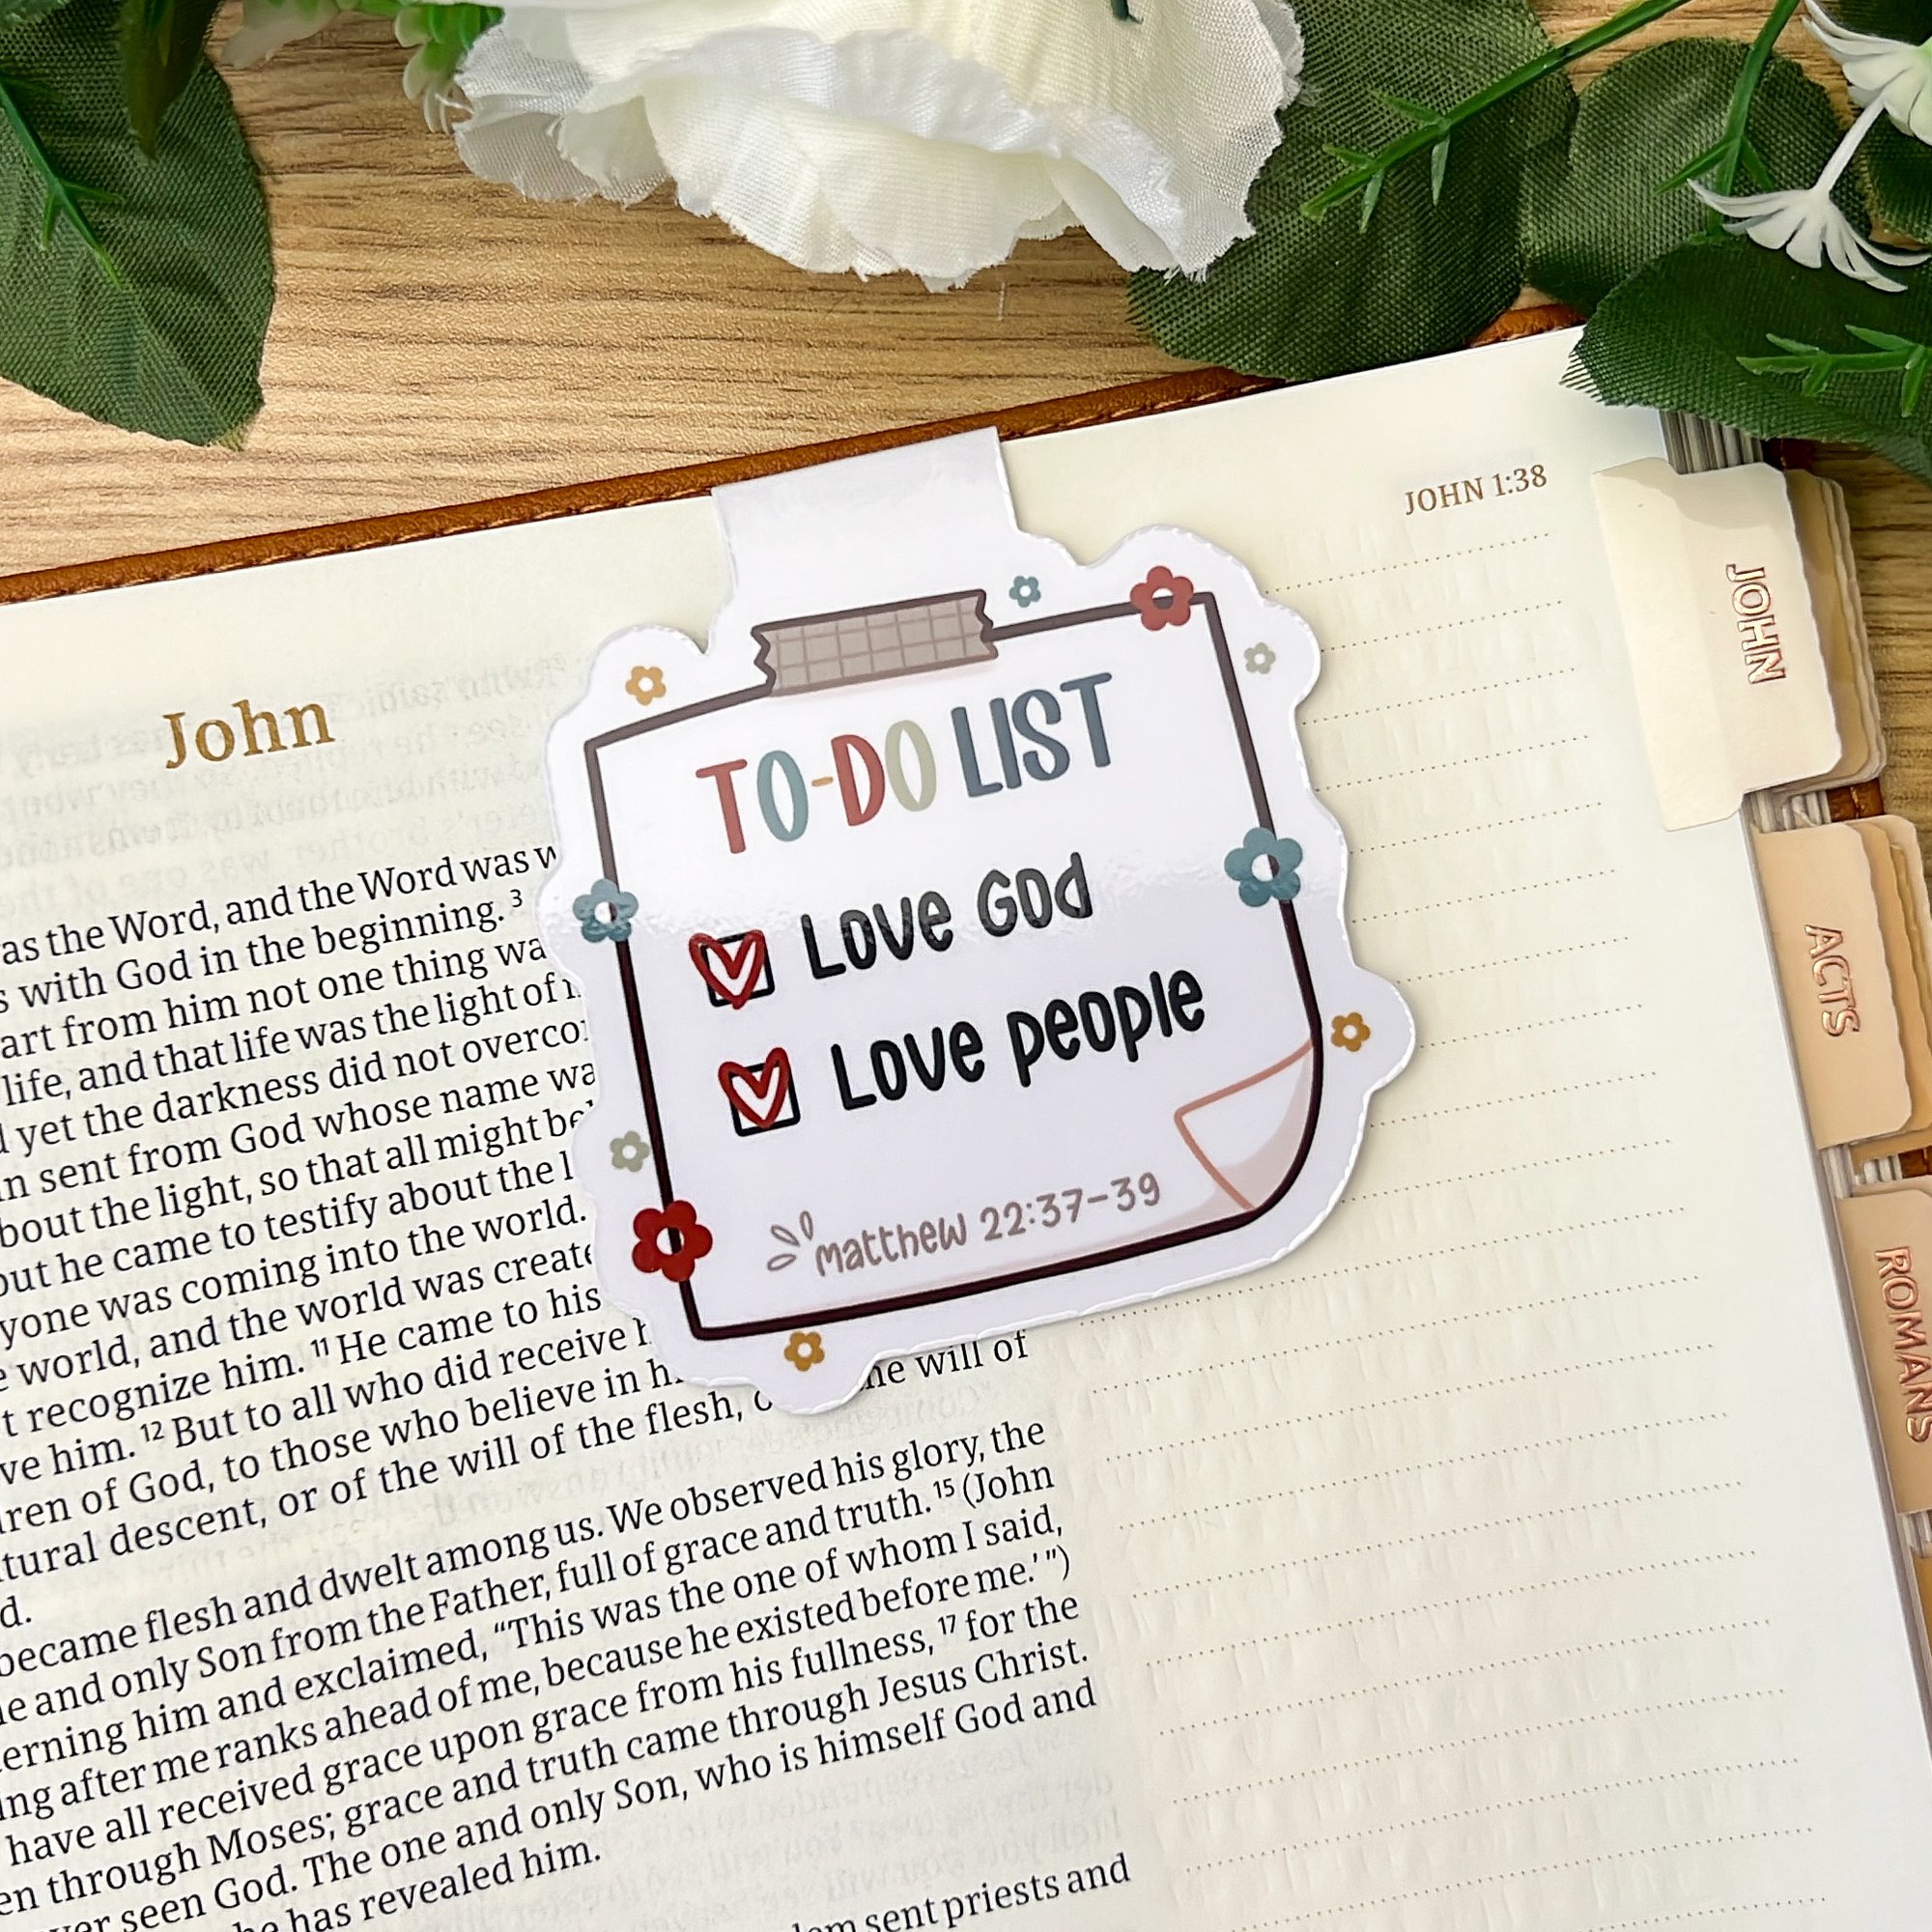 JOHN 1:38
JOHN
ACTS
ROMANS
John
TO-DO LIST
Love God
Love people
matthew 22:37-39
as the Word, and the Word was
with God in the beginning. 3
art from him not one thing
life, and that life was the light of
yet the darkness did not
sent from God whose name
bout the light, so that all might
but he came to testify about the
yone was coming into the world.
world, and the world was
t recognize him. 11 He came to his
ve him. 12 But to all who did receive
ren of God, to those who believe in
tural descent, or of the will of the flesh, he will of
d.
became flesh and dwelt among us. We observed his glory, the
e and only Son from the Father, full of grace and truth. 15 (John
erning him and exclaimed, “This was the one of whom I said,
ing after me ranks ahead of me, because he existed before me.’ ”)
have all received grace upon grace from his fullness, 17 for the
en through Moses; grace and truth came through Jesus Christ.
ver seen God. The one and only Son, who is himself God and
he has revealed him.
sent priests and